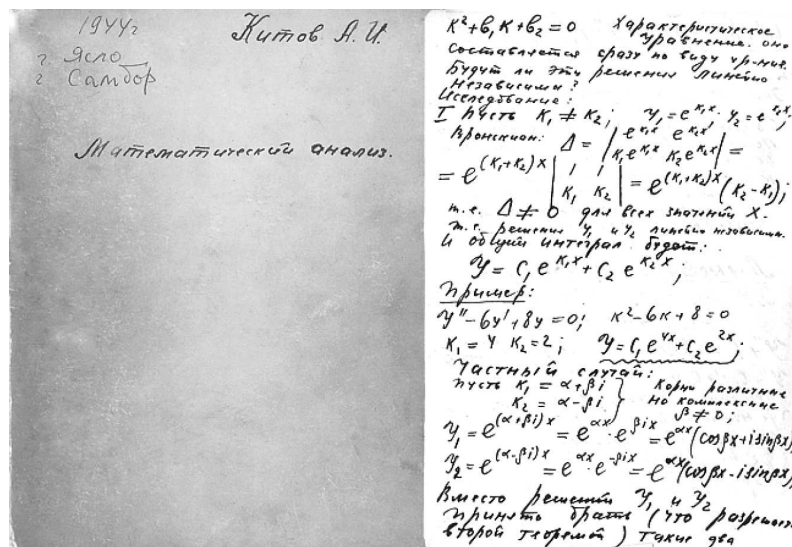 1944г
Китов А. И.
г. Ясло
г Самбор
Математический анализ.
K² + b₁K + b₂ = 0 Характеристическое
уравнение. оно
составляется сразу по виду ур-ния.
Будут ли эти решения линейно
независимы?
Исследование:
I Пусть K₁ ≠ K₂; y₁ = e^{K₁x}; y₂ = e^{K₂x};
Вронскиан: Δ = | e^{K₁x} e^{K₂x} |
| K₁e^{K₁x} K₂e^{K₂x} | =
= e^{(K₁+K₂)x} | 1 1 |
| K₁ K₂ | = e^{(K₁+K₂)x}(K₂-K₁);
т.е. Δ ≠ 0 для всех значений X.
т.е. решения y₁ и y₂ линейно независимы.
И общий интеграл будет:
y = C₁e^{K₁x} + C₂e^{K₂x};
Пример:
y'' - 6y' + 8y = 0; K² - 6K + 8 = 0
K₁ = 4 K₂ = 2; y = C₁e^{4x} + C₂e^{2x};
Частный случай:
Пусть K₁ = α + βi } Корни различные
K₂ = α - βi } но комплексные
β ≠ 0;
y₁ = e^{(α+βi)x} = e^{αx} · e^{βix} = e^{αx}(cosβx + i sinβx)
y₂ = e^{(α-βi)x} = e^{αx} · e^{-βix} = e^{αx}(cosβx - i sinβx)
Вместо решений y₁ и y₂
принято брать (что разрешает
второй теоремой) такие два